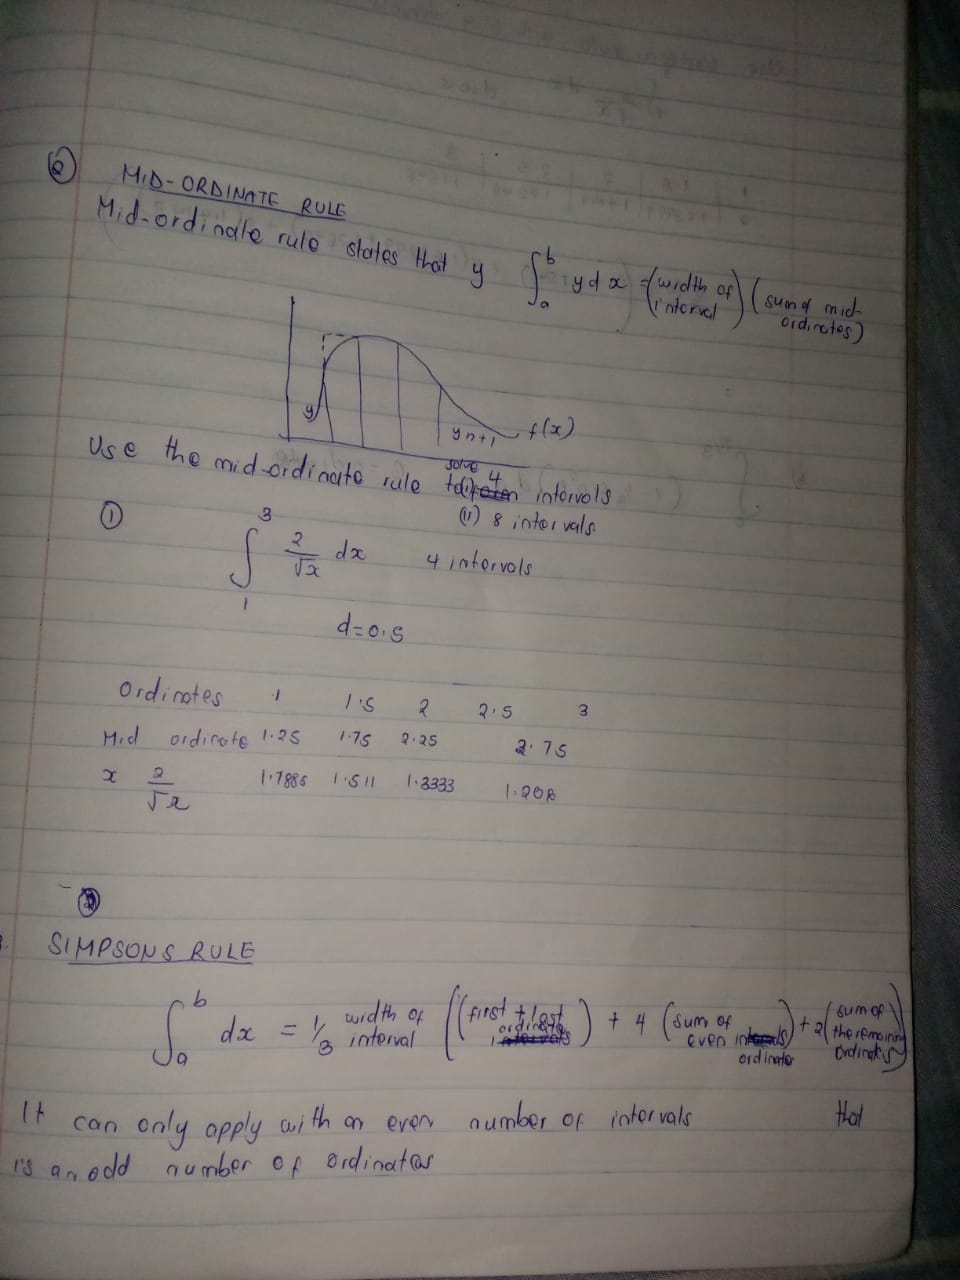 ②
MID-ORDINATE RULE
Mid-ordinate rule states that y ∫ₐᵇ ydx = (width of interval) (sum of mid-ordinates)
y
yn+1
f(x)
Use the mid-ordinate rule to solve
(i) 4 intervals
(ii) 8 intervals
① ∫₁³ 2/√x dx 4 intervals
d=0.5
Ordinates 1 1.5 2 2.5 3
Mid ordinate 1.25 1.75 2.25 2.75
x 2/√x 1.7885 1.511 1.3333 1.206
SIMPSONS RULE
∫ₐᵇ dx = 1/3 width of interval [(first + last ordinates) + 4 (sum of even ordinates) + 2 (sum of the remaining ordinates)]
It can only apply with an even number of intervals that
is an odd number of ordinates